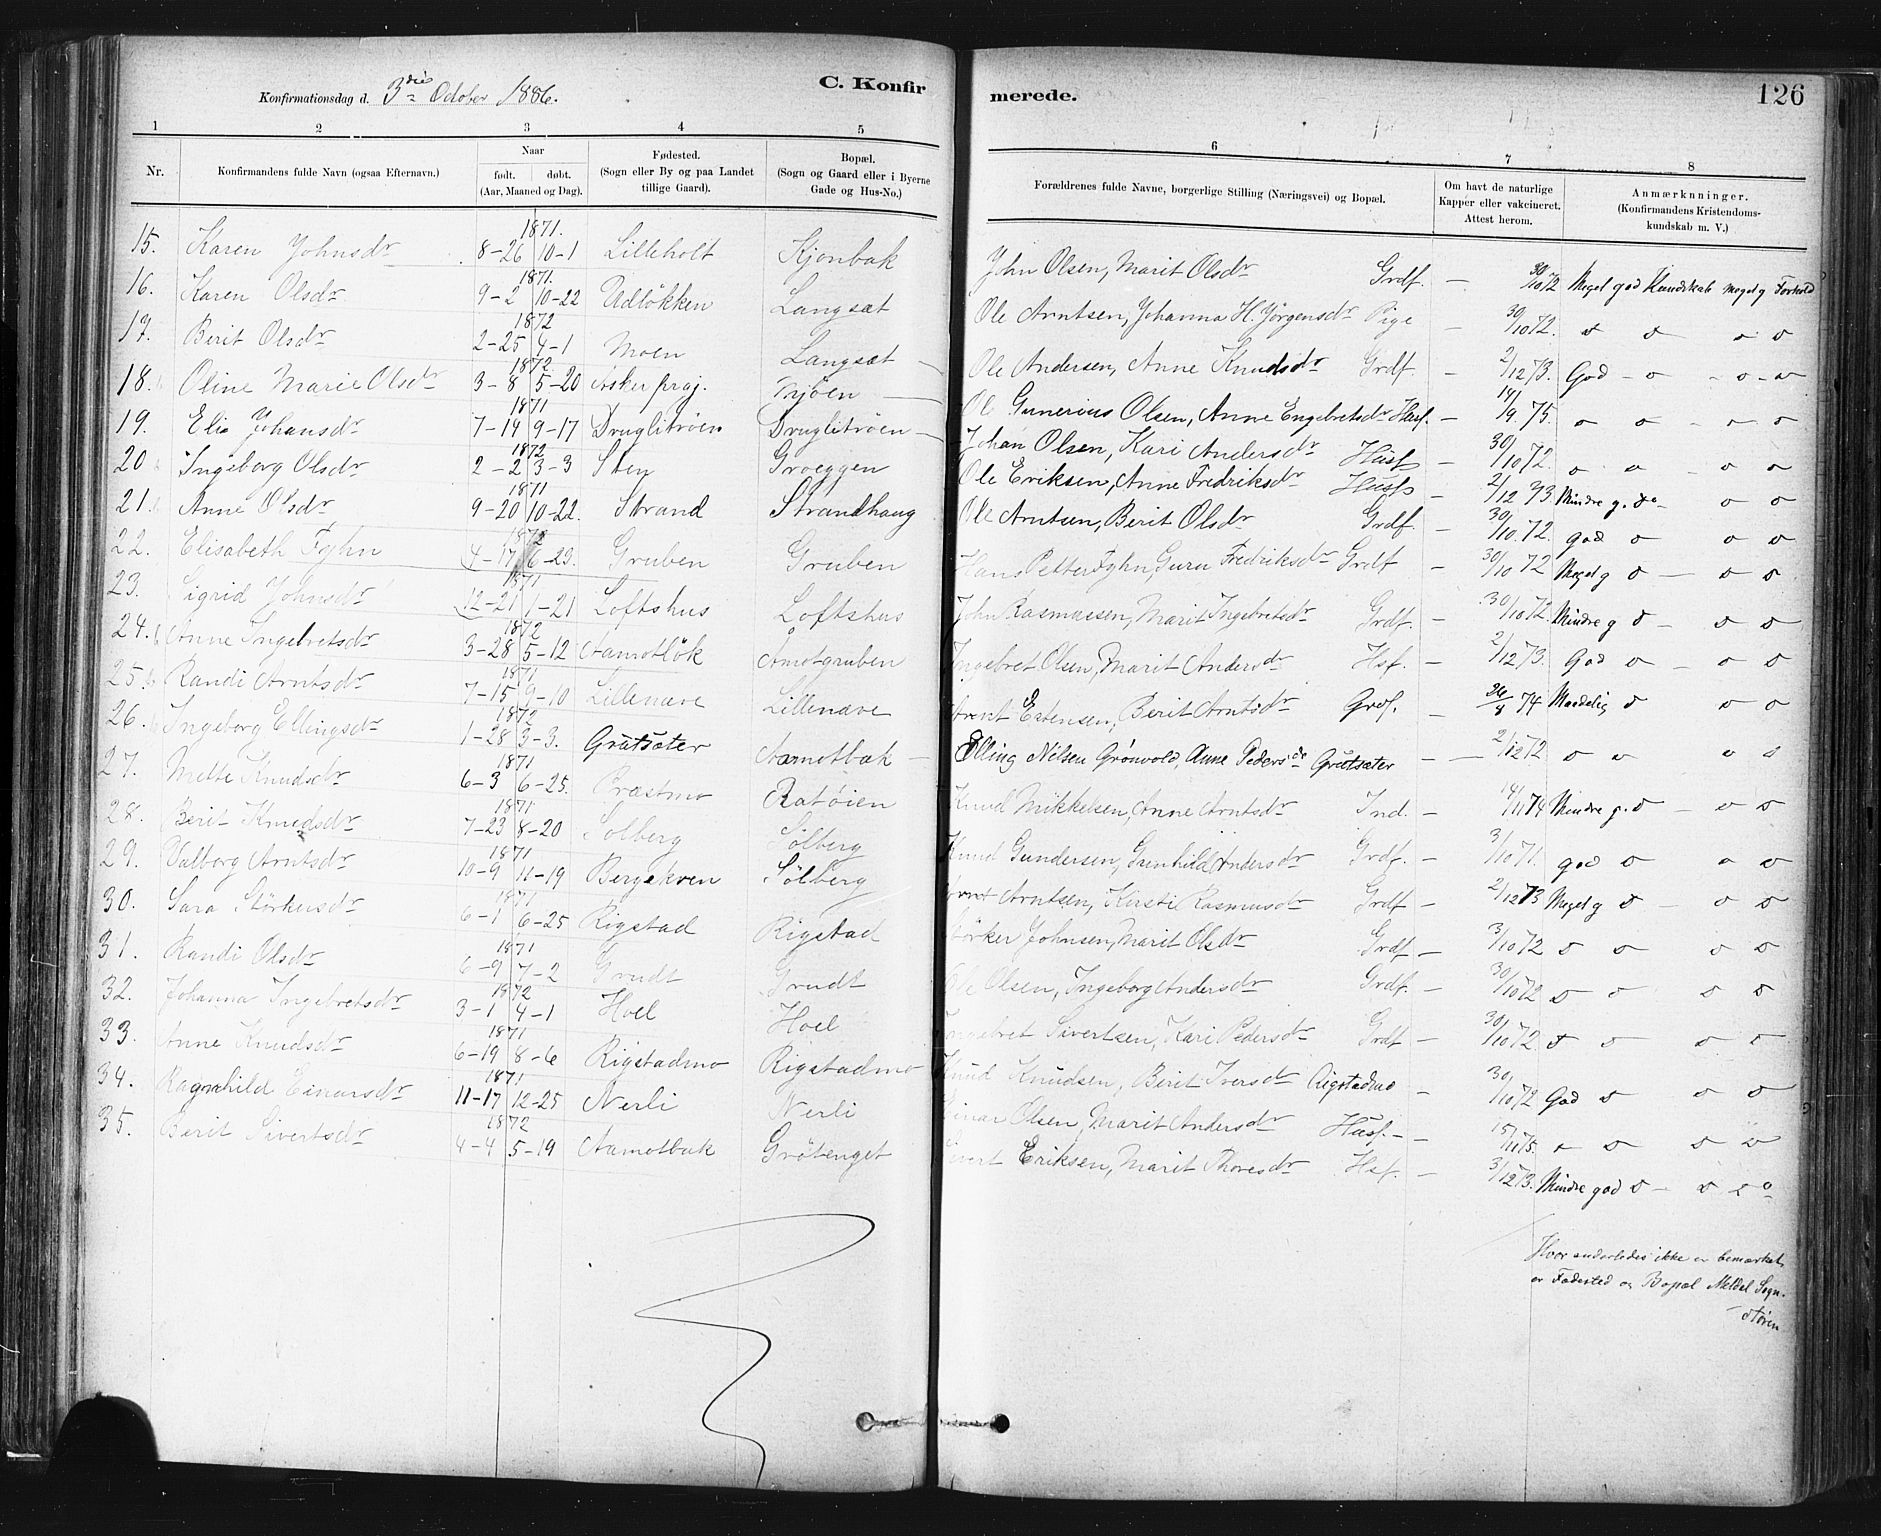 Konfirmationsdag d. 3die October 1886.
C. Konfirmerede.
126
1 2 3 4 5 6 7 8
Nr.
Konfirmandens fulde Navn (ogsaa Efternavn).
Naar
født. døbt.
(Aar, Maaned og Dag).
Fødested.
(Sogn eller By og paa Landet
tillige Gaard).
Bopæl.
(Sogn og Gaard eller i Byerne
Gade og Hus-No.)
Forældrenes fulde Navne, borgerlige Stilling (Næringsvei) og Bopæl.
Om havt de naturlige
Kapper eller vakcineret.
Attest herom.
Anmærknninger.
(Konfirmandens Kristendoms-
kundskab m. V.)
1871.
15. Karen Johnsdr 8-26 10-1 Lilleholt Kjonbak John Olsen, Marit Olsdr Grdf. — 30/10 72 Meget god Kundskab meget g Forhold
1871.
16. Karen Olsdr 9-2 10-22 Udløkken Langsæt Ole Arntsen, Johanna H. Jørgensdr Pige — 30/10 72. o o o o
1872
17. Berit Olsdr 2-25 4-1 Moen Langsæt — Ole Andersen, Anne Knudsdr Grdf. — 2/12 73. God - o - o - o
1872
18. Oline Marie Olsdr 3-8 5-20 Asker præj. Mjøen — Gunerius Olsen, Anne Engebretsdr Husf. — 14/9 75. o o - o o
1871
19. Eli Johansdr 7-14 9-17 Druglitrøen Druglitrøen — Johan Olsen, Kari Andersdr Husf — 30/10 72. o o - o o
1872
20. Ingeborg Olsdr 2-2 3-3 Sten Groeggen Ole Eriksen, Anne Fredriksdr Husf — 2/12 73. Mindre g. do - o o
1871
21. Anne Olsdr 9-20 10-22. Strand Strandhaug Ole Arntsen, Berit Olsdr Grdf. — 30/10. 72. god o o o
1872
22. Elisabeth Fyhn 4-17 6-23. Gruben Gruben Hans Petter Fyhn, Guru Fredriksdr Grdf — 30/10 72 Meget g o — o o
1871
23. Sigrid Johnsdr 12-21 1-21 Loftshus Loftshus John Rasmussen, Marit Ingebretsdr Grdf. — 30/10 72. Mindre g o - o o
1872
24. Anne Ingebretsdr 3-28 5-12 Aamotløk Åmotgruben Ingebret Olsen, Marit Andersdr Hsf. — 2/12 73. God o — o o
1871
25. Randi Arntsdr 7-15 9-10 Lillenæve Lillenæve Arnt Estensen, Berit Arntsdr Grdf. — 26/8 74 Maadelig o o o
1872
26. Ingeborg Ellingsdr 1-28 3-3. Grutsæter Aamotbak — Elling Nilsen Grønvold, Anne Pedersdr Grutsæter — 2/12 72 o o o o
1871
27. Mette Knudsdr 6-3 6-25. Præstmo Ratøien Knud Mikkelsen, Anne Arntsdr Ind. — 14/11 74 Mindre g. o — o o
1871
28. Berit Knudsdr 7-23 8-20 Solberg Sølberg Knud Gundersen, Gunhild Andersdr Grdf. — 3/10 71. god o o o
1871
29. Valborg Arntsdr 10-9 11-19 Bergskven Sølberg Arnt Arntsen, Kirsti Rasmusdr Grdf — 2/12 73 Meget g o — o o
1871
30. Sara Størkersdr 6-1 6-25 Rigstad Rigstad Størker Johnsen, Marit Olsdr Grdf — 3/10 72 o o o o
1871
31. Randi Olsdr 6-9 7-2 Grudt Grudt Ole Olsen, Ingeborg Andersdr Grdf. — 30/10 72 o o o o
1872
32. Johanna Ingebretsdr 3-1 4-1 Hoel Hoel Ingebret Sivertsen, Kari Pedersdr Grdf — 30/10 72 o o o o
1871
33. Anne Knudsdr 6-19 8-6 Rigstadmo Rigstadmo Knud Knudsen, Berit Iversdr Rigstadmo — 30/10 72 God o o o
1871
34. Ragnhild Einarsdr 11-17 12-25 Nerli Nerli Einar Olsen, Marit Andersdr Husf. — 15/11 75. o o o o
1872
35. Berit Sivertsdr 4-4 5-19 Aamotbak Grøtenget Sivert Eriksen, Marit Thoresdr Hsf. — 3/12 73. Mindre god o — o o
Hvor anderledes ikke er bemærket,
er Fødested og Bopæl Meldal Sogn.
Støren